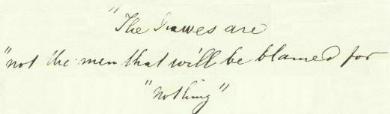 "The Juwes are
"not the men that will be blamed for
"nothing"